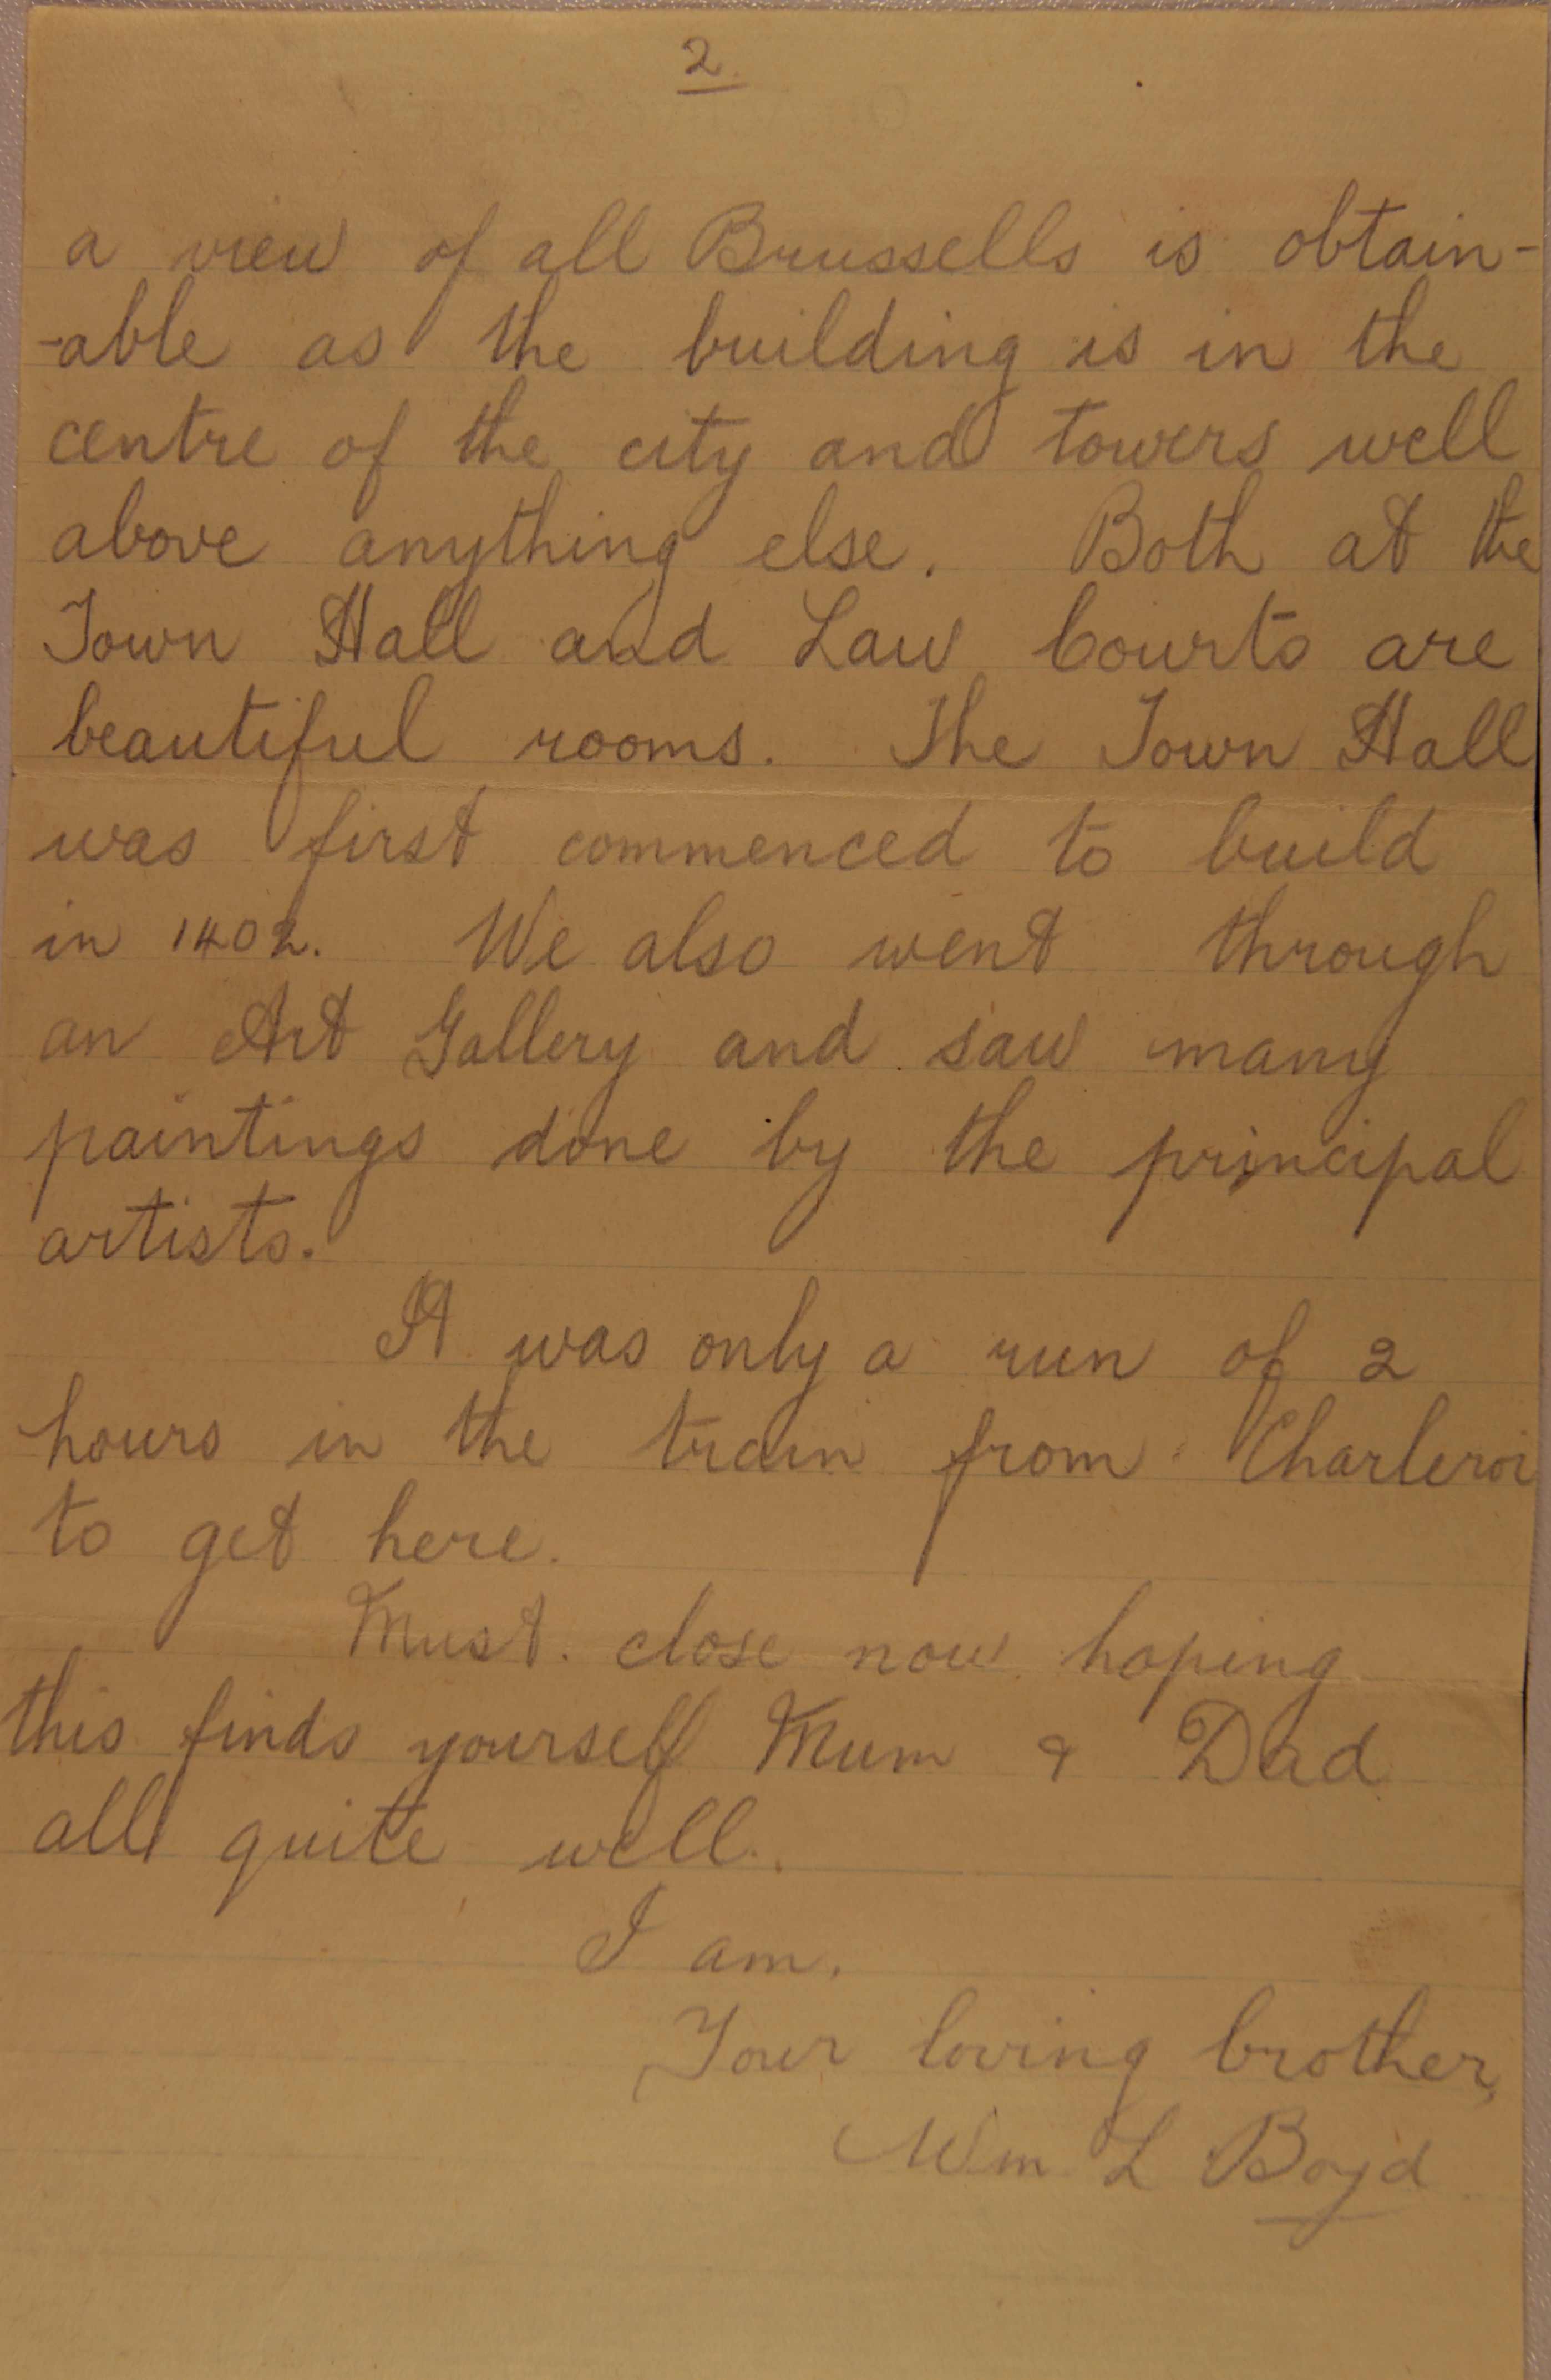 2.
a view of all Brussells is obtain-
-able as the building is in the
centre of the city and towers well
above anything else. Both at the
Town Hall and Law Courts are
beautiful rooms. The Town Hall
was first commenced to build
in 1402. We also went through
an Art Gallery and saw many
paintings done by the principal
artists.
It was only a run of 2
hours in the train from Charleroi
to get here.
Must close now hoping
this finds yourself Mum & Dad
all quite well.
I am.
Your loving brother,
Wm L Boyd